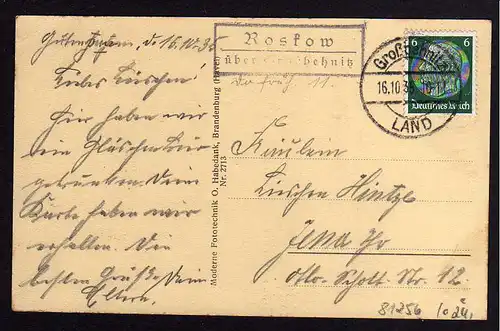 Gutenpaaren, d. 16.10.35
Liebes Lieschen!
Hier haben wir
ein Gläschen Bier
getrunken. Dein
Karte haben wir
erhalten. Die
besten Grüße Dein
Eltern.
Roskow
über Groß Behnitz
Groß Behnitz
16.10.35
LAND
6 6
Deutsches Reich
Moderne Fototechnik O. Habedank, Brandenburg (Havel)
Nr. 2713
Fräulein
Lieschen Hintze
Jena Th
Otto-Schott-Str. 12
81256